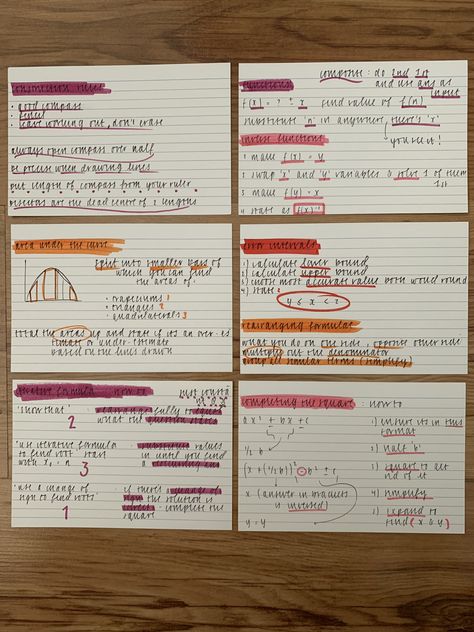 construction rules
· good compass
· pencil
· leave working out, don't erase
always open compass over half
be precise when drawing lines
put length of compass from your ruler
bisectors are the dead centre of 2 lengths
functions
composite : do 2nd 1st
and use ans as
input
f(x) = ? ± x find value of f(n)
substitute 'n' in anywhere there's 'x'
you see it!
inverse functions
1 make f(x) = y
2 swap 'x' and 'y' variables & solve 1 of them
1st
3 make f(y) = x
4 state as f(x)⁻¹
area under the curve
split into smaller bars of
which you can find
the areas of:
· trapeziums 1
· triangles 2
· quadrilaterals 3
total the areas up and state if its an over-es
timate or under-estimate
based on the lines drawn
error intervals
1) calculate lower bound
2) calculate upper bound
3) most accurate value both round
4) state:
y ≤ x < z
rearranging formulae
what you do on one side, opposite other side
multiply out the denominator
group all similar terms (simplify)
iterative formula : how to
'show that'
2
rearrange fully to equal
what the question states
'use iterative formula
to find root' start
with x,
3
substitute values
in until you find
a
'use a change of
sign to find roots'
1
if theres a change of
sign the solution is
correct. complete the
square
completing the square : how to
ax² + bx + c
½ b
(x + (½b))² - b² ± c
x (answer in brackets
is inversed)
y = y
1) ensure its in this
format
2) half 'b'
3) square to get
rid of it
4) simplify
5) expand to
find (x & y)